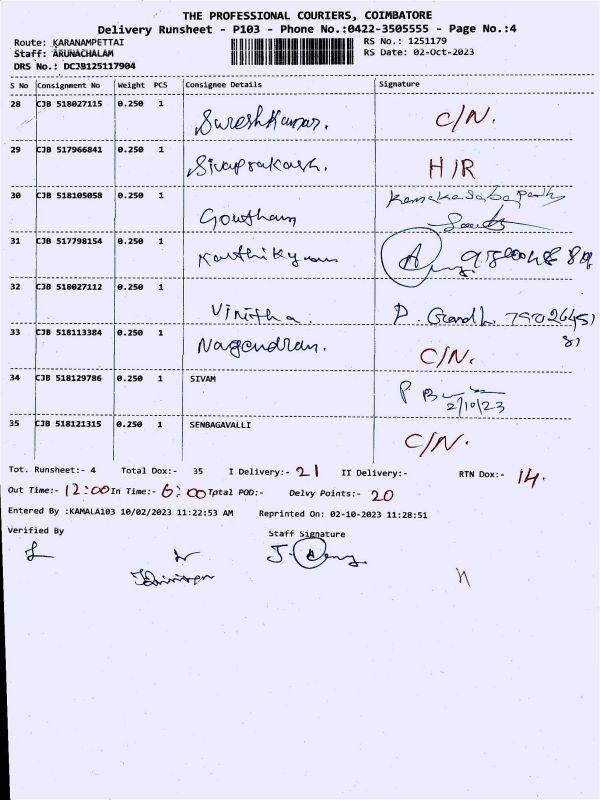 THE PROFESSIONAL COURIERS, COIMBATORE
Delivery Runsheet - P103 - Phone No.:0422-3505555 - Page No.:4
Route: KARANAMPETTAI RS No.: 1251179
Staff: ARUNACHALAM RS Date: 02-Oct-2023
DRS No.: DCJB125117904
S No Consignment No Weight PCS Consignee Details Signature
28 CJB 518027115 0.250 1 SureshKumar. C/N.
29 CJB 517966841 0.250 1 Sivaprakash. H/R
30 CJB 518105058 0.250 1 Goutham
31 CJB 517798154 0.250 1
32 CJB 518027112 0.250 1 Vinitha
33 CJB 518113384 0.250 1 Nagendran. C/N.
34 CJB 518129786 0.250 1 SIVAM 2/10/23
35 CJB 518121315 0.250 1 SENBAGAVALLI C/N.
Tot. Runsheet:- 4 Total Dox:- 35 I Delivery:- 21 II Delivery:- RTN Dox:- 14.
Out Time:- 12:00 In Time:- 6:00 Tptal POD:- Delvy Points:- 20
Entered By :KAMALA103 10/02/2023 11:22:53 AM Reprinted On: 02-10-2023 11:28:51
Verified By Staff Signature